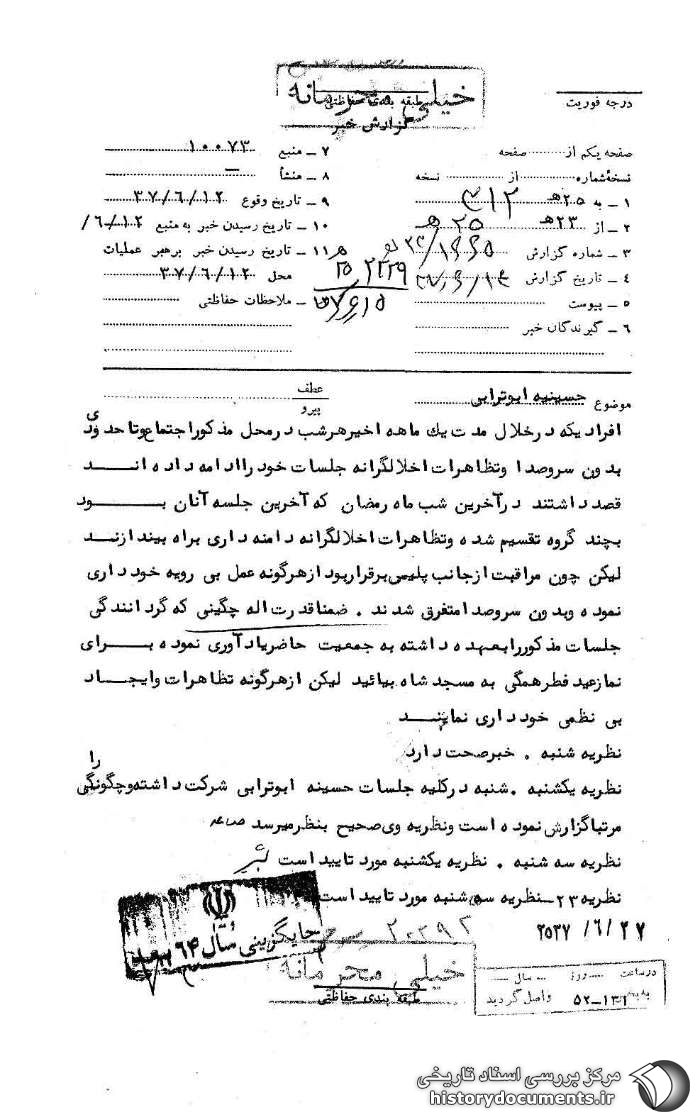 خیلی محرمانه
طبقه بندی حفاظتی
گزارش خبر
درجه فوریت
صفحه یکم از ........ صفحه
نسخه شماره ........ از ........ نسخه
۱ ـ به ۲۵ هـ ۳۱۲
۲ ـ از ۲۳ هـ
۳ ـ شماره گزارش
۴ ـ تاریخ گزارش
۵ ـ پیوست
۶ ـ گیرندگان خبر
۷ ـ منبع ۱۰۰۷۳
۸ ـ منشأ ـ
۹ ـ تاریخ وقوع ۳۷/۶/۱۲
۱۰ ـ تاریخ رسیدن خبر به منبع ۶/۱۲/
۱۱ ـ تاریخ رسیدن خبر برهبر عملیات
محل ۳۷/۶/۱۲
ـ ملاحظات حفاظتی
۲۲۲۹
موضوع حسینیه ابوترابی
عطف
پیرو
افرادیکه درخلال مدت یك ماهه اخیرهرشب درمحل مذکوراجتماع وتاحدودی
بدون سروصدا وتظاهرات اخلالگرانه جلسات خودراادامه داده انـــد
قصدداشتند درآخرین شب ماه رمضان که آخرین جلسه آنان بـــود
بچند گروه تقسیم شده وتظاهرات اخلالگرانه دامنه داری براه بیندازنـد
لیکن چون مراقبت ازجانب پلیس برقراربود ازهرگونه عمل بی رویه خودداری
نموده وبدون سروصدامتفرق شدند . ضمناقدرت اله چگینی که گردانندگی
جلسات مذکوررابعهده داشته به جمعیت حاضریادآوری نموده بــرای
نمازعید فطرهمگی به مسجد شاه بیائید لیکن ازهرگونه تظاهرات وایجـاد
بی نظمی خودداری نمایـنــد
نظریه شنبه . خبرصحت دارد
نظریه یکشنبه . شنبه درکلیه جلسات حسینه ابوترابی شرکت داشته وچگونگی را
مرتباگزارش نموده است ونظریه وی صحیح بنظرمیرسد
نظریه سه شنبه . نظریه یکشنبه مورد تایید است
نظریه ۲۳ـ نظریه سه شنبه مورد تایید است
۲۵۳۷/۶/۲۷
جایگزینی سال ۶۴
خیلی محرمانه
طبقه بندی حفاظتی
درساعت ـــ روز ـــ سال ـــ
واصل گردید
مرکز بررسی اسناد تاریخی
historydocuments.ir